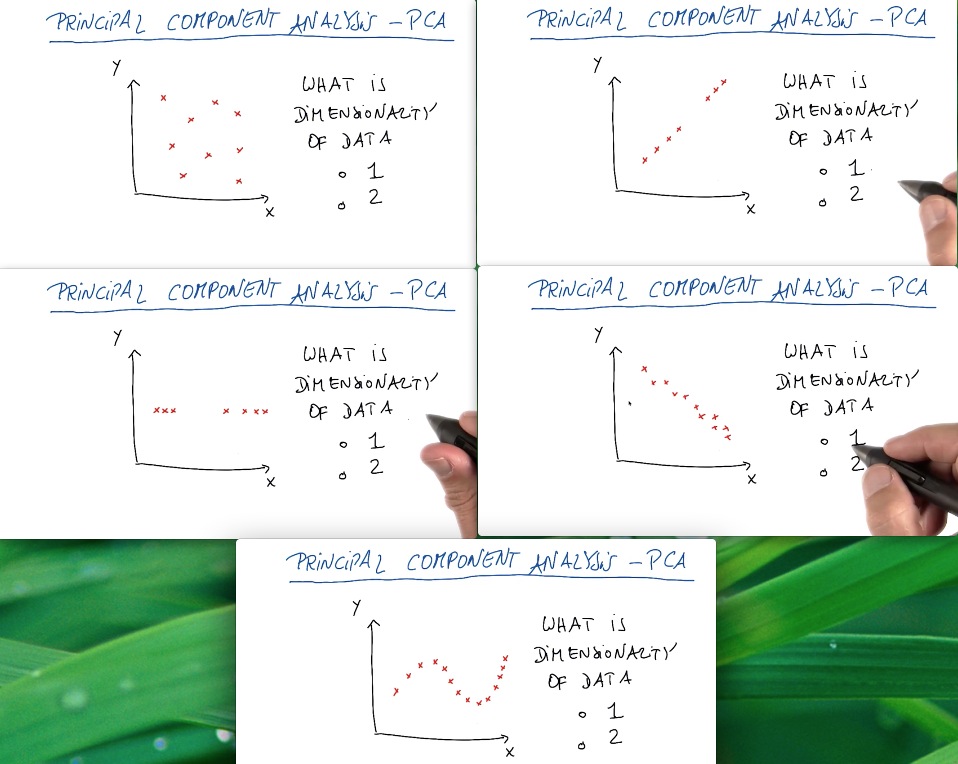 PRINCIPAL COMPONENT ANALYSIS - PCA
Y
WHAT IS
DIMENSIONALITY
OF DATA
1
2
X
PRINCIPAL COMPONENT ANALYSIS - PCA
Y
WHAT IS
DIMENSIONALITY
OF DATA
1
2
X
PRINCIPAL COMPONENT ANALYSIS - PCA
Y
WHAT IS
DIMENSIONALITY
OF DATA
1
2
X
PRINCIPAL COMPONENT ANALYSIS - PCA
Y
WHAT IS
DIMENSIONALITY
OF DATA
1
2
X
PRINCIPAL COMPONENT ANALYSIS - PCA
Y
WHAT IS
DIMENSIONALITY
OF DATA
1
2
X